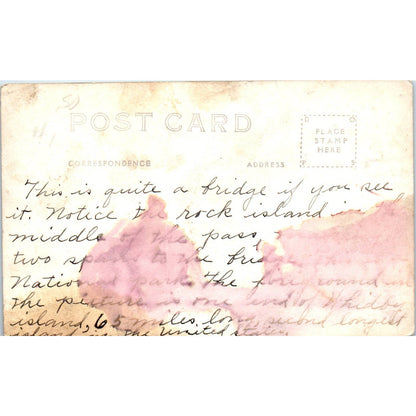 POST CARD
PLACE
STAMP
HERE
CORRESPONDENCE ADDRESS
This is quite a bridge if you see
it. Notice the rock island in the
middle of the pass,
two spans to the bridge
National Park. The foreground in
the picture is one end of Whidby
island, 65 miles long, second longest
island in the United states.